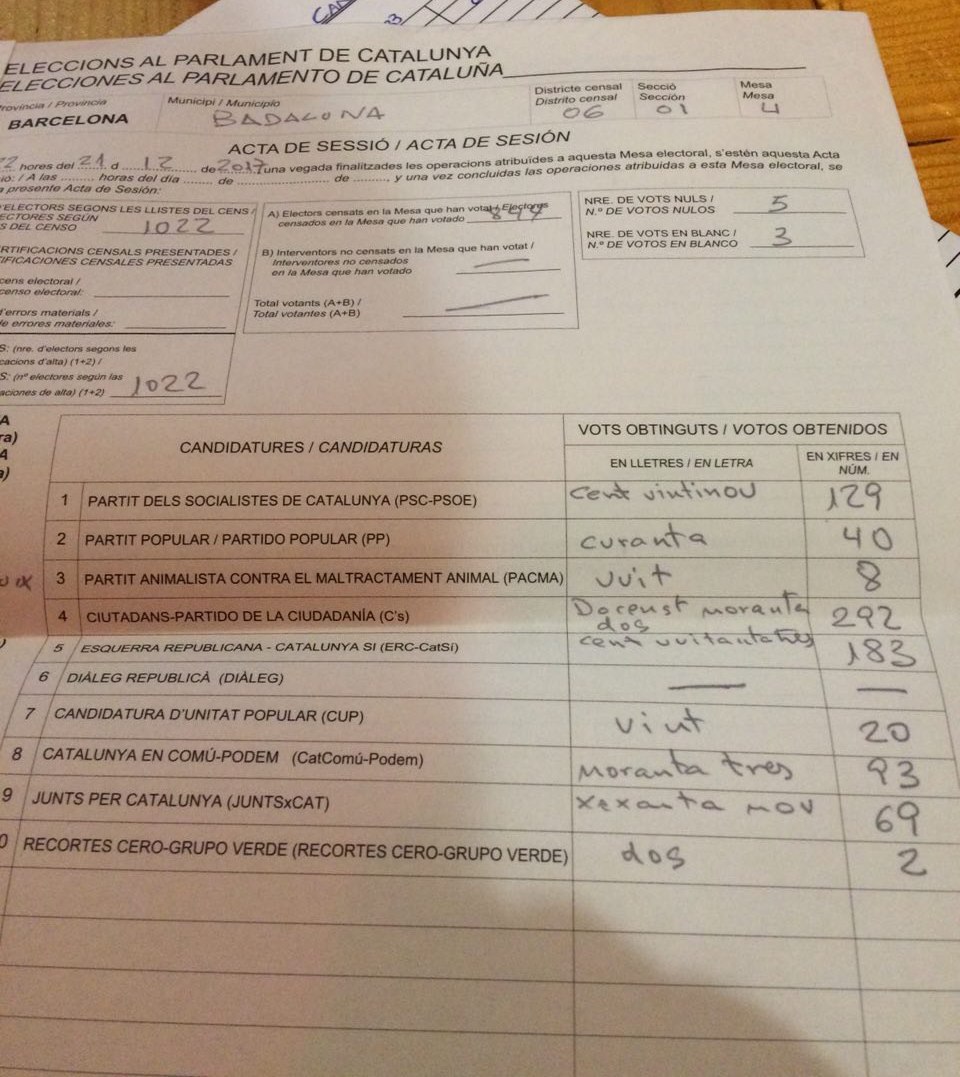 ELECCIONS AL PARLAMENT DE CATALUNYA
ELECCIONES AL PARLAMENTO DE CATALUÑA
Província / Provincia
BARCELONA
Municipi / Municipio
BADALONA
Districte censal
Distrito censal
06
Secció
Sección
01
Mesa
Mesa
4
ACTA DE SESSIÓ / ACTA DE SESIÓN
22 hores del 21 d 12 de 2017 una vegada finalitzades les operacions atribuïdes a aquesta Mesa electoral, s'estén aquesta Acta
ió: / A las ........ horas del día ....... de ....................... de ........, y una vez concluidas las operaciones atribuidas a esta Mesa electoral, se
a presente Acta de Sesión:
ELECTORS SEGONS LES LLISTES DEL CENS /
ECTORES SEGÚN
S DEL CENSO 1022
RTIFICACIONS CENSALS PRESENTADES /
IFICACIONES CENSALES PRESENTADAS
cens electoral /
censo electoral:
d'errors materials /
de errores materiales:
S: (nre. d'electors segons les
cacions d'alta) (1+2) /
S: (nº electores según las
aciones de alta) (1+2) 1022
A) Electors censats en la Mesa que han votat / Electores
censados en la Mesa que han votado
B) Interventors no censats en la Mesa que han votat /
Interventores no censados
en la Mesa que han votado
Total votants (A+B) /
Total votantes (A+B)
NRE. DE VOTS NULS /
N.º DE VOTOS NULOS 5
NRE. DE VOTS EN BLANC /
N.º DE VOTOS EN BLANCO 3
CANDIDATURES / CANDIDATURAS
VOTS OBTINGUTS / VOTOS OBTENIDOS
EN LLETRES / EN LETRA
EN XIFRES / EN
NÚM.
1 PARTIT DELS SOCIALISTES DE CATALUNYA (PSC-PSOE) cent vintinou 129
2 PARTIT POPULAR / PARTIDO POPULAR (PP) curanta 40
3 PARTIT ANIMALISTA CONTRA EL MALTRACTAMENT ANIMAL (PACMA) vuit 8
4 CIUTADANS-PARTIDO DE LA CIUDADANÍA (C's) Docenst noranta dos 292
5 ESQUERRA REPUBLICANA - CATALUNYA SI (ERC-CatSí) cent vuitantatres 183
6 DIÀLEG REPUBLICÀ (DIÀLEG) — —
7 CANDIDATURA D'UNITAT POPULAR (CUP) vint 20
8 CATALUNYA EN COMÚ-PODEM (CatComú-Podem) noranta tres 93
9 JUNTS PER CATALUNYA (JUNTSxCAT) xexanta nov 69
0 RECORTES CERO-GRUPO VERDE (RECORTES CERO-GRUPO VERDE) dos 2